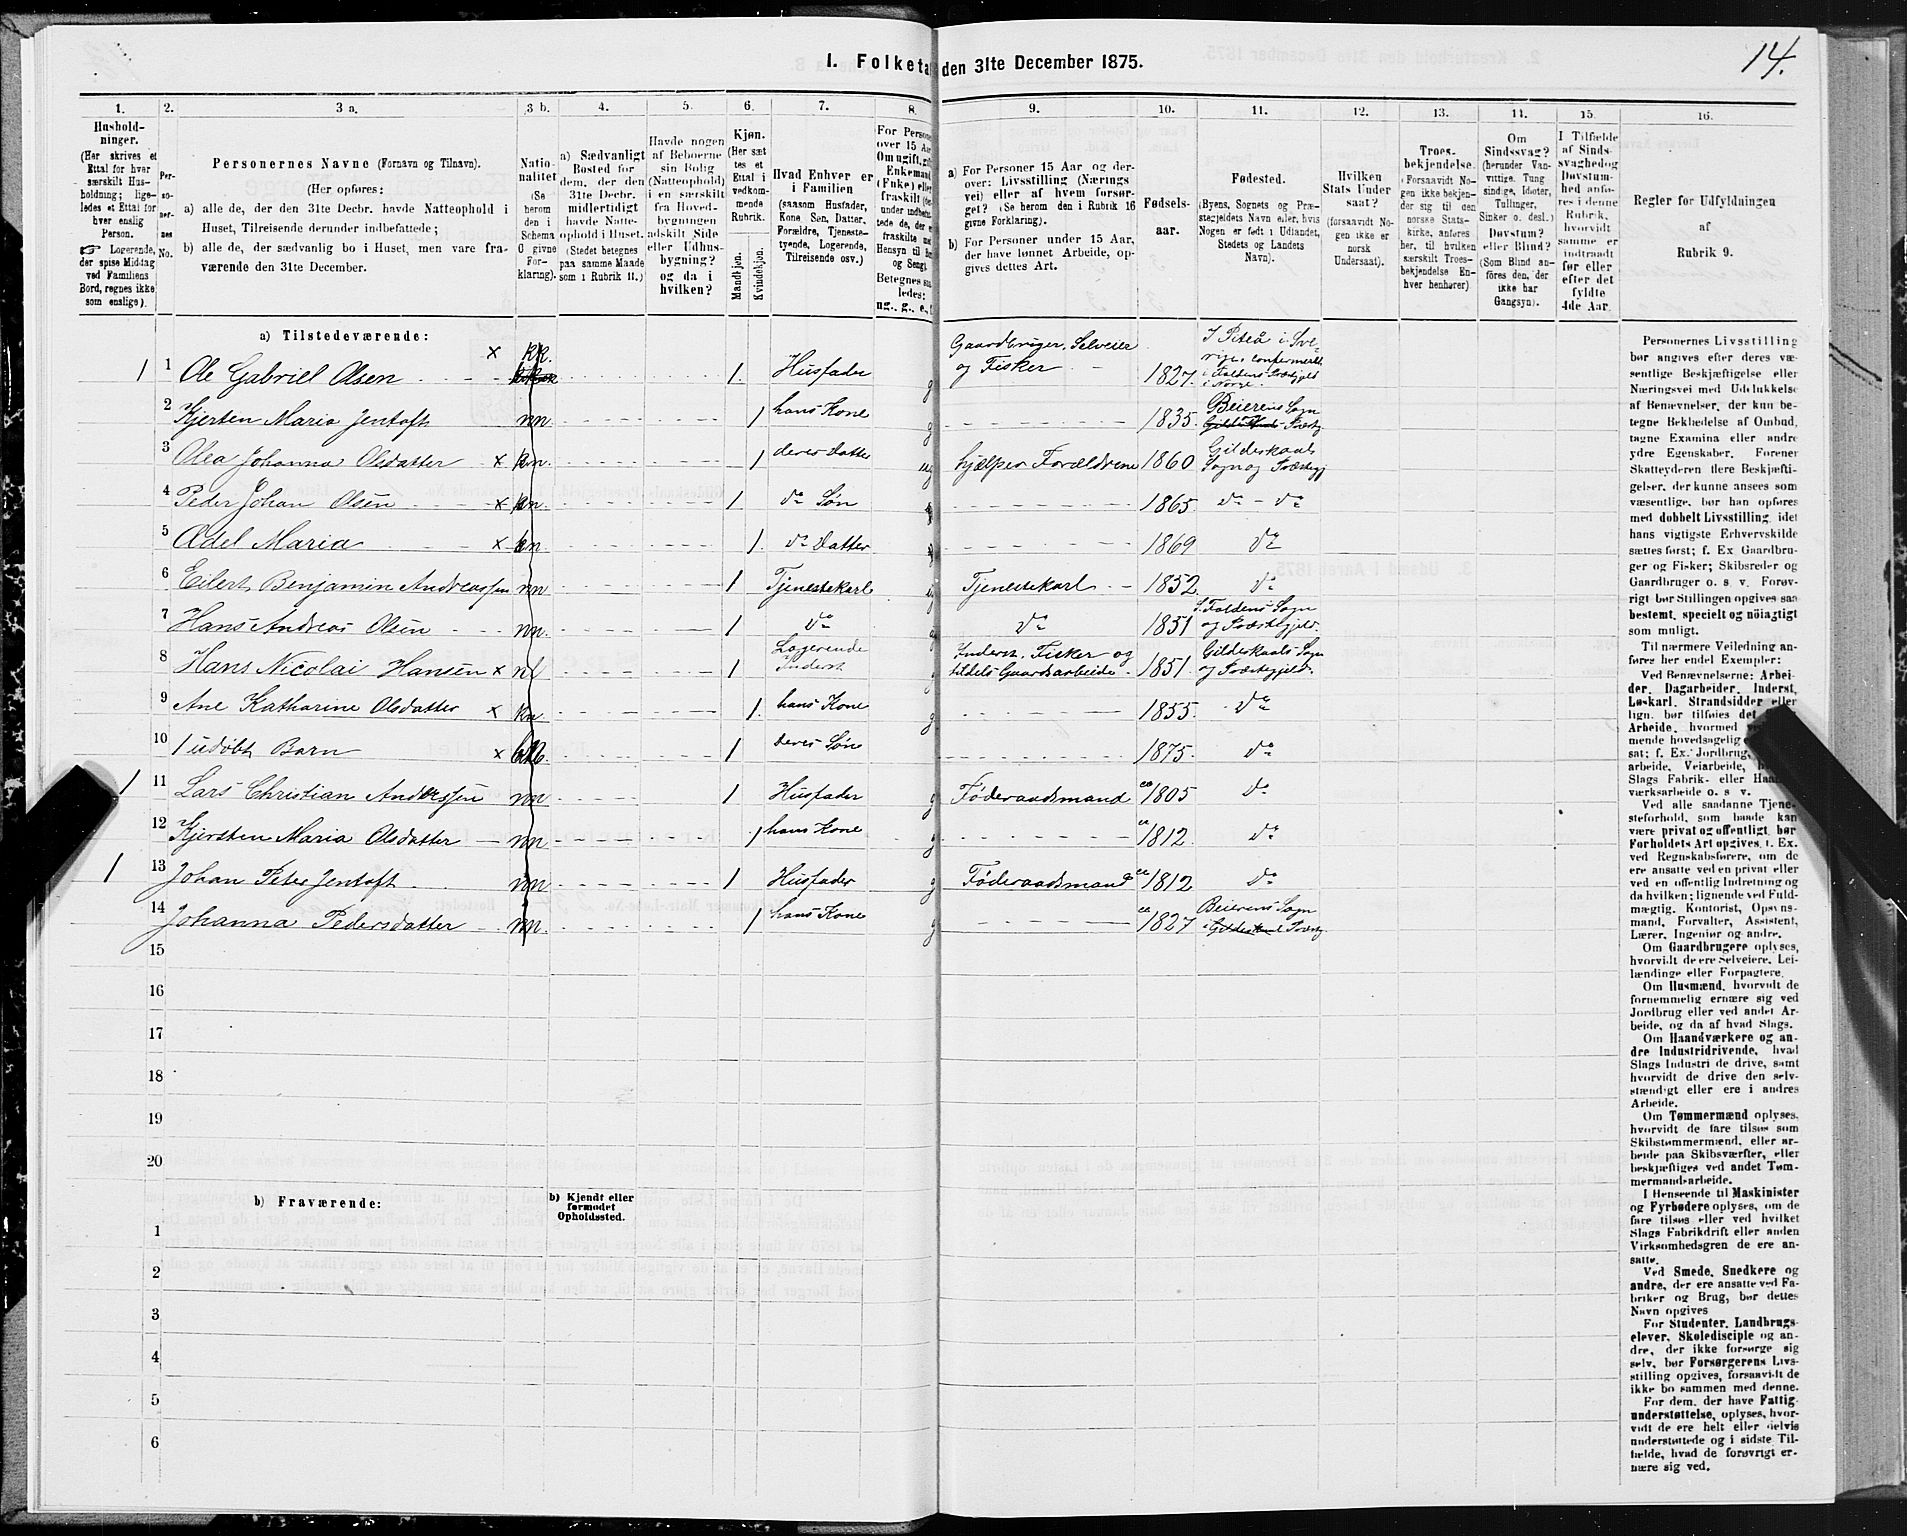 14.
I. Folketa den 31te December 1875.
1.
2.
3 a.
3 b.
4.
5.
6.
7.
8.
9.
10.
11.
12.
13.
14.
15.
16.
Hushold-
ninger.
(Her skrives et
Ettal for hver
særskilt Hus-
holdning; lige-
ledes et Ettal for
hver enslig
Person.
☞ Logerende,
der spise Middag
ved Familiens
Bord, regnes ikke
som enslige).
Per-
so-
ner-
nes
No.
Personernes Navne (Fornavn og Tilnavn).
(Her opføres:
a) alle de, der den 31te Decbr. havde Natteophold i
Huset, Tilreisende derunder indbefattede;
b) alle de, der sædvanlig bo i Huset, men vare fra-
værende den 31te December.
Natio-
nalitet
(Se
herom
den i
Schema
G givne
For-
klaring).
a) Sædvanligt
Bosted for
dem, der den
31te Decbr.
midlertidigt
havde Natte-
ophold i Huset.
(Stedet betegnes
paa samme Maade
som i Rubrik 11.)
Havde nogen
af Beboerne
sin Bolig
(Natteophold)
i en særskilt
fra Hoved-
bygningen
adskilt Side
eller Udhus-
bygning?
og da i
hvilken?
Kjøn.
(Her sæt
tes et
Ettal i
vedkom-
mende
Rubrik.
Mandkjøn.
Kvindekjøn.
Hvad Enhver er
i Familien
(saasom Husfader,
Kone, Søn, Datter,
Forældre, Tjeneste-
tyende, Logerende,
Tilreisende osv.)
For Persone
over 15 Aa
Om ugift, gift
Enkemand
(Enke) elle
fraskilt
Betegnes saa
ledes:
ug., g., e.
a) For Personer 15 Aar og der-
over: Livsstilling (Nærings
vei) eller af hvem forsør-
get? (Se herom den i Rubrik 16
givne Forklaring).
b) For Personer under 15 Aar,
der have lønnet Arbeide, op-
gives dettes Art.
Fødsels-
aar.
Fødested.
(Byens, Sognets og Præ-
stegjeldets Navn eller, hvis
Nogen er født i Udlandet,
Stedets og Landets
Navn).
Hvilken
Stats Under
saat?
(forsaavidt No-
gen ikke er
norsk
Undersaat).
Troes-
bekjendelse.
(Forsaavidt No-
gen ikke bekjen-
der sig til den
norske Stats-
kirke, anføres
her, til hvilken
særskilt Troes-
bekjendelse En-
hver henhører)
Om
Sindssvag?
(herunder Van-
vittige, Tung
sindige, Idioter,
Tullinger,
Sinker o. desl.)
Døvstum?
eller Blind?
(Som Blind an-
føres den, der
ikke har
Gangsyn).
I Tilfælde
af Sinds-
svaghed og
Døvstum-
hed anfø-
res i denne
Rubrik,
hvorvidt
samme er
indtraadt
før eller
efter det
fyldte
4de Aar.
Regler for Udfyldningen
af
Rubrik 9.
a) Tilstedeværende:
1 1 Ole Gabriel Olsen × kk. 1. Husfader g Gaardbruger, Selveier og Fisker 1827. I Piteå i Sve-rige, confirmeret i Foldens Præstegjeld i Norge.
2 Kjersten Maria Jentoft nn. 1 hans Kone g 1835. Beierens Sogn
3 Olea Johanna Olsdatter × kn. 1 deres Datter ug hjælper Forældrene 1860 Gildeskaals Sogn og Præstegj
4 Peder Johan Olsen × kn. 1 do Søn 1865 do - do
5 Adel Maria × kn 1. do Datter 1869 do
6 Eilert Benjamin Andreassen nn 1 Tjenestekarl ug Tjenestekarl 1852 do
7 Hans Andreas Olsen nn. 1 do do 1851 S. Foldens Sogn og Præstegjeld
8 Hans Nicolai Hansen × nl 1 Logerende Inderst g Inderst, Fisker og tildels Gaardsarbeide 1851. Gildeskaals Sogn og Præstegjeld.
9 Ane Katharine Olsdatter × kn 1. hans Kone g 1855. do
10 1 udøbt Barn × 1 deres Søn 1875. do
1 11 Lars Christian Anderssen nn 1 Husfader g Føderaadsmand ca 1805 do
12 Kjersten Maria Olsdatter nn 1 hans Kone g ca 1812. do
1 13 Johan Peter Jentoft nn 1 Husfader g Føderaadsmand ca 1812 do
14 Johanna Pedersdatter nn. 1 hans Kone g ca 1827 Beierens Sogn i Gildeskaal Præstg
15
16
17
18
19
20
b) Fraværende:
b) Kjendt eller
formodet
Opholdssted.
1
2
3
4
5
6
Personernes Livsstilling
bør angives efter deres væ-
sentlige Beskjæftigelse eller
Næringsvei med Udelukkelse
af Benævnelser, der kun be-
tegne Beklædelse af Ombud,
tagne Examina eller andre
ydre Egenskaber. Forener
Skatteyderen flere Beskjæfti-
gelser, der kunne ansees som
væsentlige, bør han opføres
med dobbelt Livsstilling, idet
hans vigtigste Erhvervskilde
sættes først; f. Ex Gaardbru-
ger og Fisker; Skibsreder og
Gaardbruger o. s. v. Forøv-
rigt bør Stillingen opgives saa
bestemt, specielt og nöiagtigt
som muligt.
Til nærmere Veiledning an-
føres her endel Exempler:
Ved Benævnelserne: Arbei-
der, Dagarbeider, Inderst,
Løskarl, Strandsidder eller
lign. bør tilføies det
Arbeide, hvormed
mende hovedsagelig
sat; f. Ex. Jordbrug,
arbeide, Veiarbeide,
Slags Fabrik- eller Haan
værksarbeide o. s v.
Ved alle saadanne Tjene-
steforhold, som baade kan
være privat og offentligt, bør
Forholdets Art opgives, f. Ex.
ved Regnskabsførere, om de
ere ansatte ved en privat eller
ved en offentlig Indretning og
da hvilken; lignende ved Fuld-
mægtig, Kontorist, Opsyns-
mand, Forvalter, Assistent,
Lærer, Ingeniør og andre.
Om Gaardbrugere oplyses,
hvorvidt de ere Selveiere, Lei-
lændinge eller Forpagtere.
Om Husmænd, hvorvidt de
fornemmelig ernære sig ved
Jordbrug eller ved andet Ar-
beide, og da af hvad Slags.
Om Haandværkere og an-
dre Industridrivende, hvad
Slags Industri de drive, samt
hvorvidt de drive den selv-
stændigt eller ere i andres
Arbeide.
Om Tømmermænd oplyses,
hvorvidt de fare tilsøs som
Skibstømmermænd, eller ar-
beide paa Skibsværfter, eller
beskjæftiges ved andet Tøm-
mermandsarbeide.
I Henseende til Maskinister
og Fyrbødere oplyses, om de
fare tilsøs eller ved hvilket
Slags Fabrikdrift eller anden
Virksomhedsgren de ere an-
satte.
Ved Smede, Snedkere og
andre, der ere ansatte ved Fa-
briker og Brug, bør dettes
Navn opgives
For Studenter, Landbrugs-
elever, Skoledisciple og an-
dre, der ikke forsørge sig
selv, bør Forsørgerens Livs-
stilling opgives, forsaavidt de
ikke bo sammen med denne.
For dem, der have Fattig-
understøttelse, oplyses, hvor-
vidt de ere helt eller delvis
understøttede og i sidste Til-
fælde, hvad de forøvrigt er-
nære sig ved.